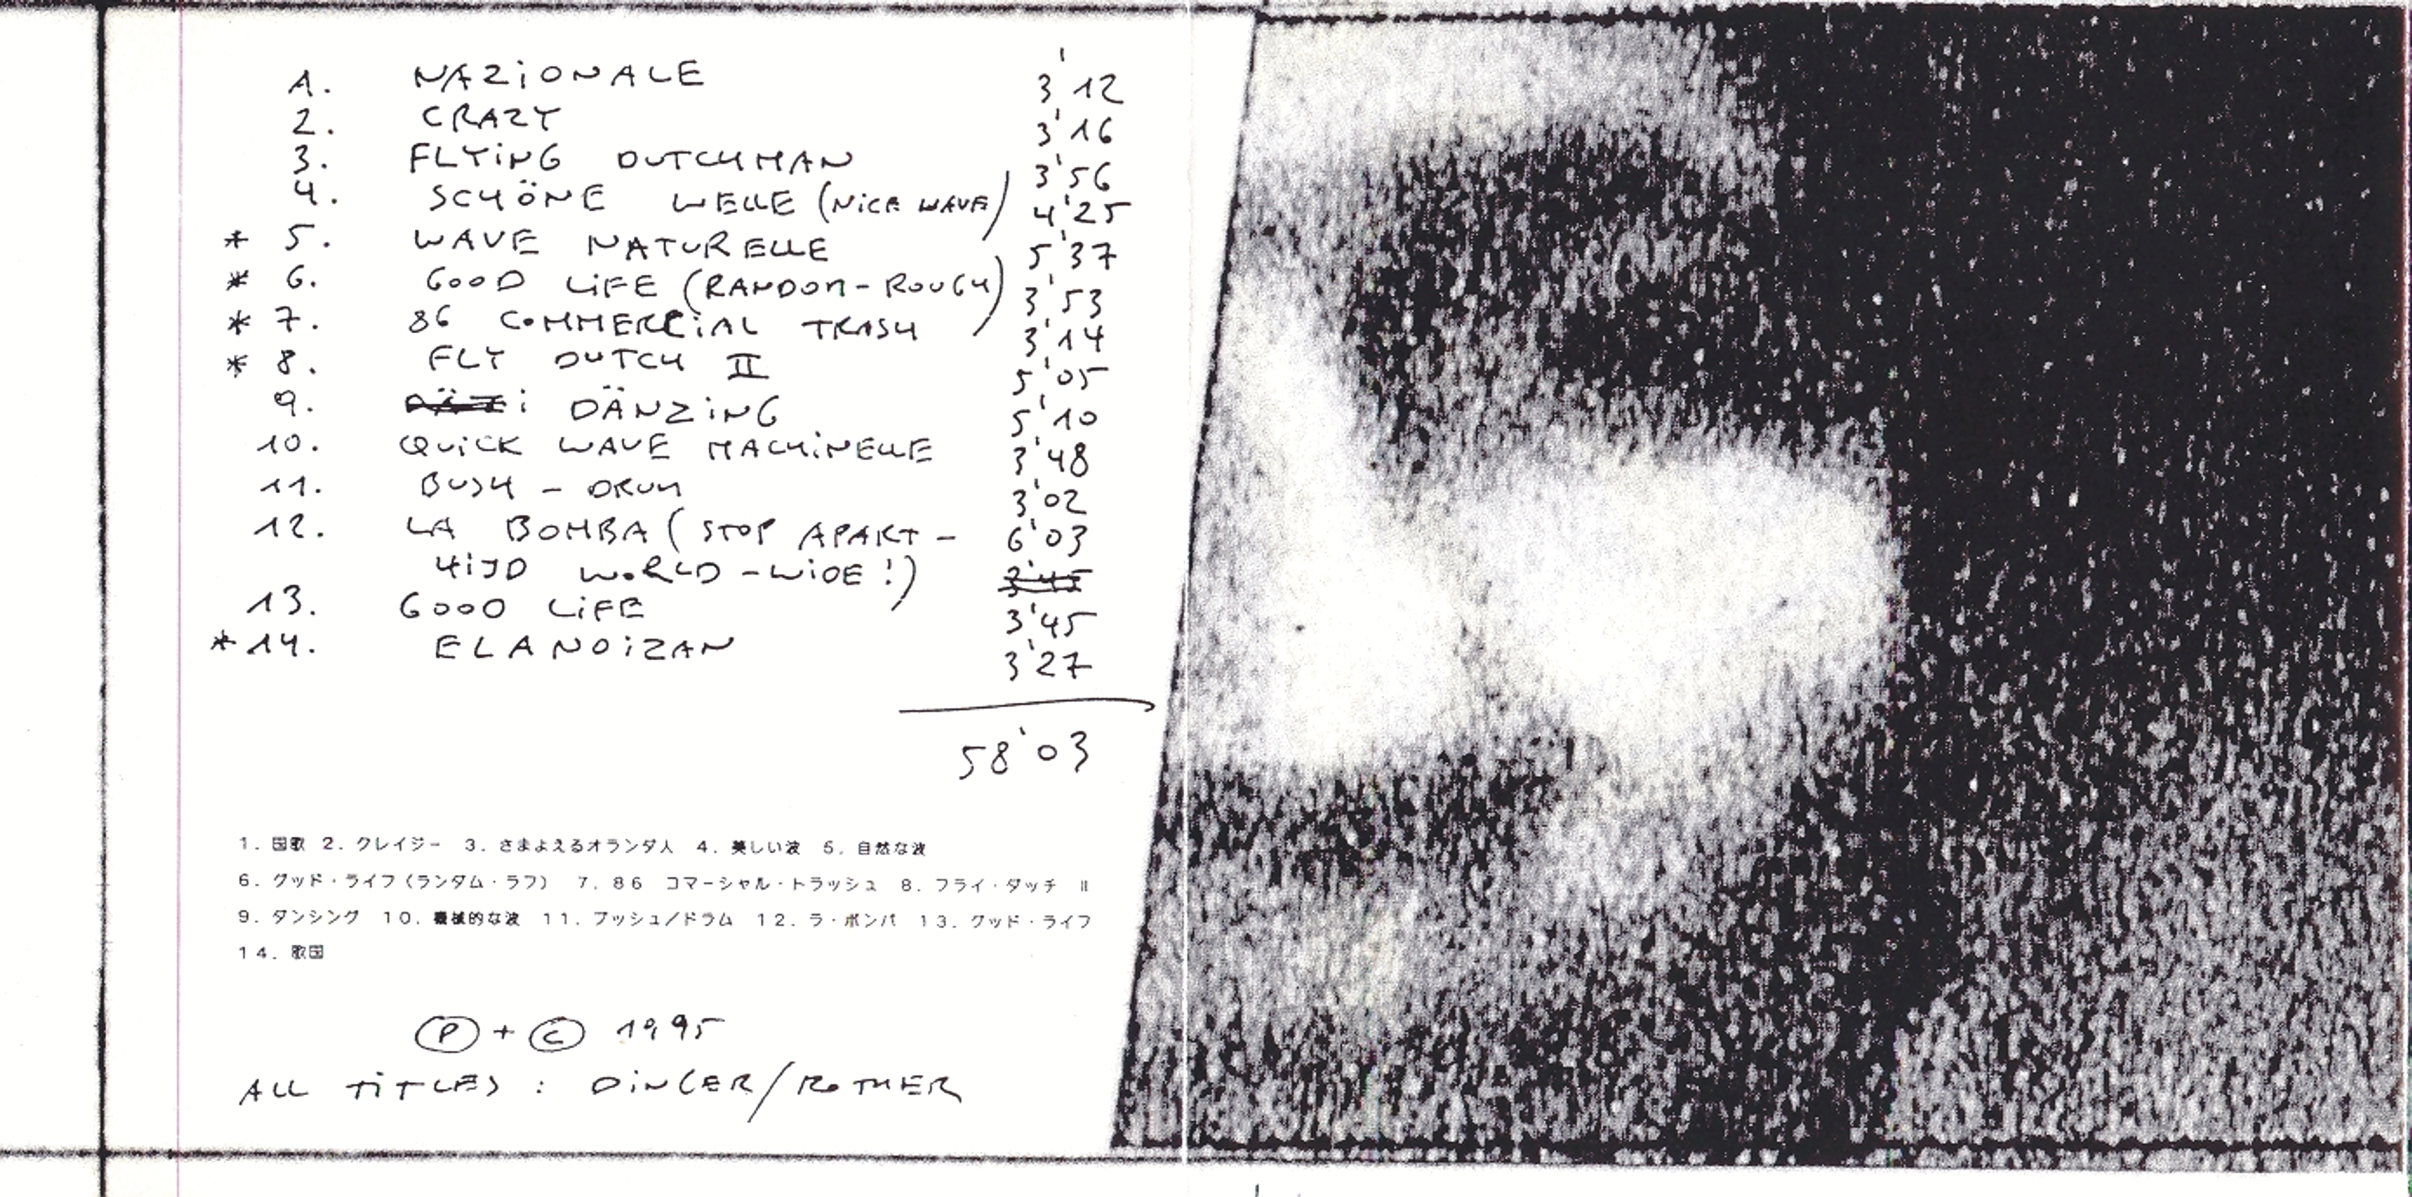 1. NAZIONALE 3'12
2. CRAZY 3'16
3. FLYING DUTCHMAN 3'56
4. SCHÖNE WELLE (NICE WAVE) 4'25
* 5. WAVE NATURELLE 5'37
* 6. GOOD LIFE (RANDOM-ROUGH) 3'53
* 7. 86 COMMERCIAL TRASH 3'14
* 8. FLY DUTCH II 5'05
9. : DÄNZING 5'10
10. QUICK WAVE MACHINELLE 3'48
11. BUSH - DRUM 3'02
12. LA BOMBA (STOP APART- 6'03
HIJD WORLD-WIDE!) 3'45
13. GOOD LIFE 3'45
* 14. ELANOIZAN 3'27
58'03
1. 国歌 2. クレイジー 3. さまよえるオランダ人 4. 美しい波 5. 自然な波
6. グッド・ライフ（ランダム・ラフ） 7. 86 コマーシャル・トラッシュ 8. フライ・ダッチ II
9. ダンシング 10. 機械的な波 11. ブッシュ／ドラム 12. ラ・ボンバ 13. グッド・ライフ
14. 歌国
Ⓟ + © 1995
ALL TITLES : DINGER/ROTHER